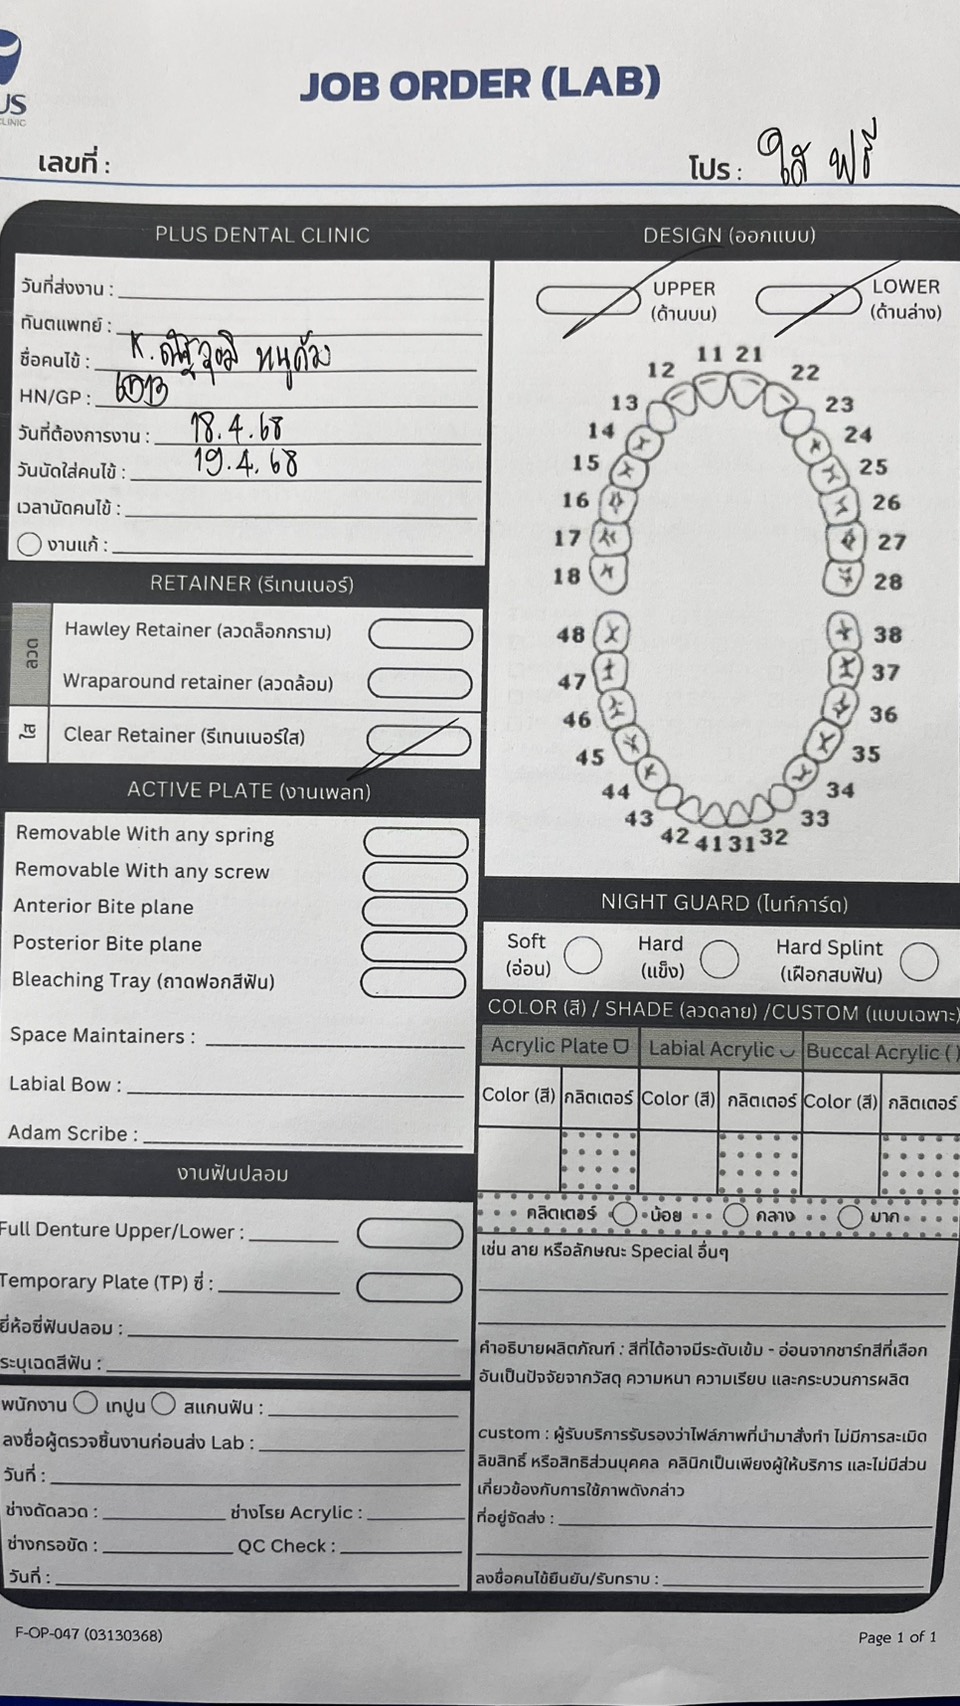 US
CLINIC
JOB ORDER (LAB)
เลขที่ :
โปร : ใส ฟรี
PLUS DENTAL CLINIC
วันที่ส่งงาน :
ทันตแพทย์ :
ชื่อคนไข้ : K.
HN/GP :
วันที่ต้องการงาน : 18.4.68
วันนัดใส่คนไข้ : 19.4.68
เวลานัดคนไข้ :
งานแก้ :
RETAINER (รีเทนเนอร์)
ลวด
Hawley Retainer (ลวดล็อกกราม)
Wraparound retainer (ลวดล้อม)
ใส
Clear Retainer (รีเทนเนอร์ใส)
ACTIVE PLATE (งานเพลท)
Removable With any spring
Removable With any screw
Anterior Bite plane
Posterior Bite plane
Bleaching Tray (ถาดฟอกสีฟัน)
Space Maintainers :
Labial Bow :
Adam Scribe :
งานฟันปลอม
Full Denture Upper/Lower :
Temporary Plate (TP) ซี่ :
ยี่ห้อซี่ฟันปลอม :
ระบุเฉดสีฟัน :
พนักงาน เทปูน สแกนฟัน :
ลงชื่อผู้ตรวจชิ้นงานก่อนส่ง Lab :
วันที่ :
ช่างดัดลวด : ช่างโรย Acrylic :
ช่างกรอขัด : QC Check :
วันที่ :
DESIGN (ออกแบบ)
UPPER LOWER
(ด้านบน) (ด้านล่าง)
11 21
12 22
13 23
14 24
15 25
16 26
17 27
18 28
48 38
47 37
46 36
45 35
44 34
43 33
42 41 31 32
NIGHT GUARD (ไนท์การ์ด)
Soft Hard Hard Splint
(อ่อน) (แข็ง) (เฝือกสบฟัน)
COLOR (สี) / SHADE (ลวดลาย) /CUSTOM (แบบเฉพาะ)
Acrylic Plate Labial Acrylic Buccal Acrylic ( )
Color (สี) กลิตเตอร์ Color (สี) กลิตเตอร์ Color (สี) กลิตเตอร์
คลิตเตอร์ น้อย กลาง มาก
เช่น ลาย หรือลักษณะ Special อื่นๆ
คำอธิบายผลิตภัณฑ์ : สีที่ได้อาจมีระดับเข้ม - อ่อนจากชาร์ทสีที่เลือก
อันเป็นปัจจัยจากวัสดุ ความหนา ความเรียบ และกระบวนการผลิต
custom : ผู้รับบริการรับรองว่าไฟล์ภาพที่นำมาสั่งทำ ไม่มีการละเมิด
ลิขสิทธิ์ หรือสิทธิส่วนบุคคล คลินิกเป็นเพียงผู้ให้บริการ และไม่มีส่วน
เกี่ยวข้องกับการใช้ภาพดังกล่าว
ที่อยู่จัดส่ง :
ลงชื่อคนไข้ยืนยัน/รับทราบ :
F-OP-047 (03130368)
Page 1 of 1